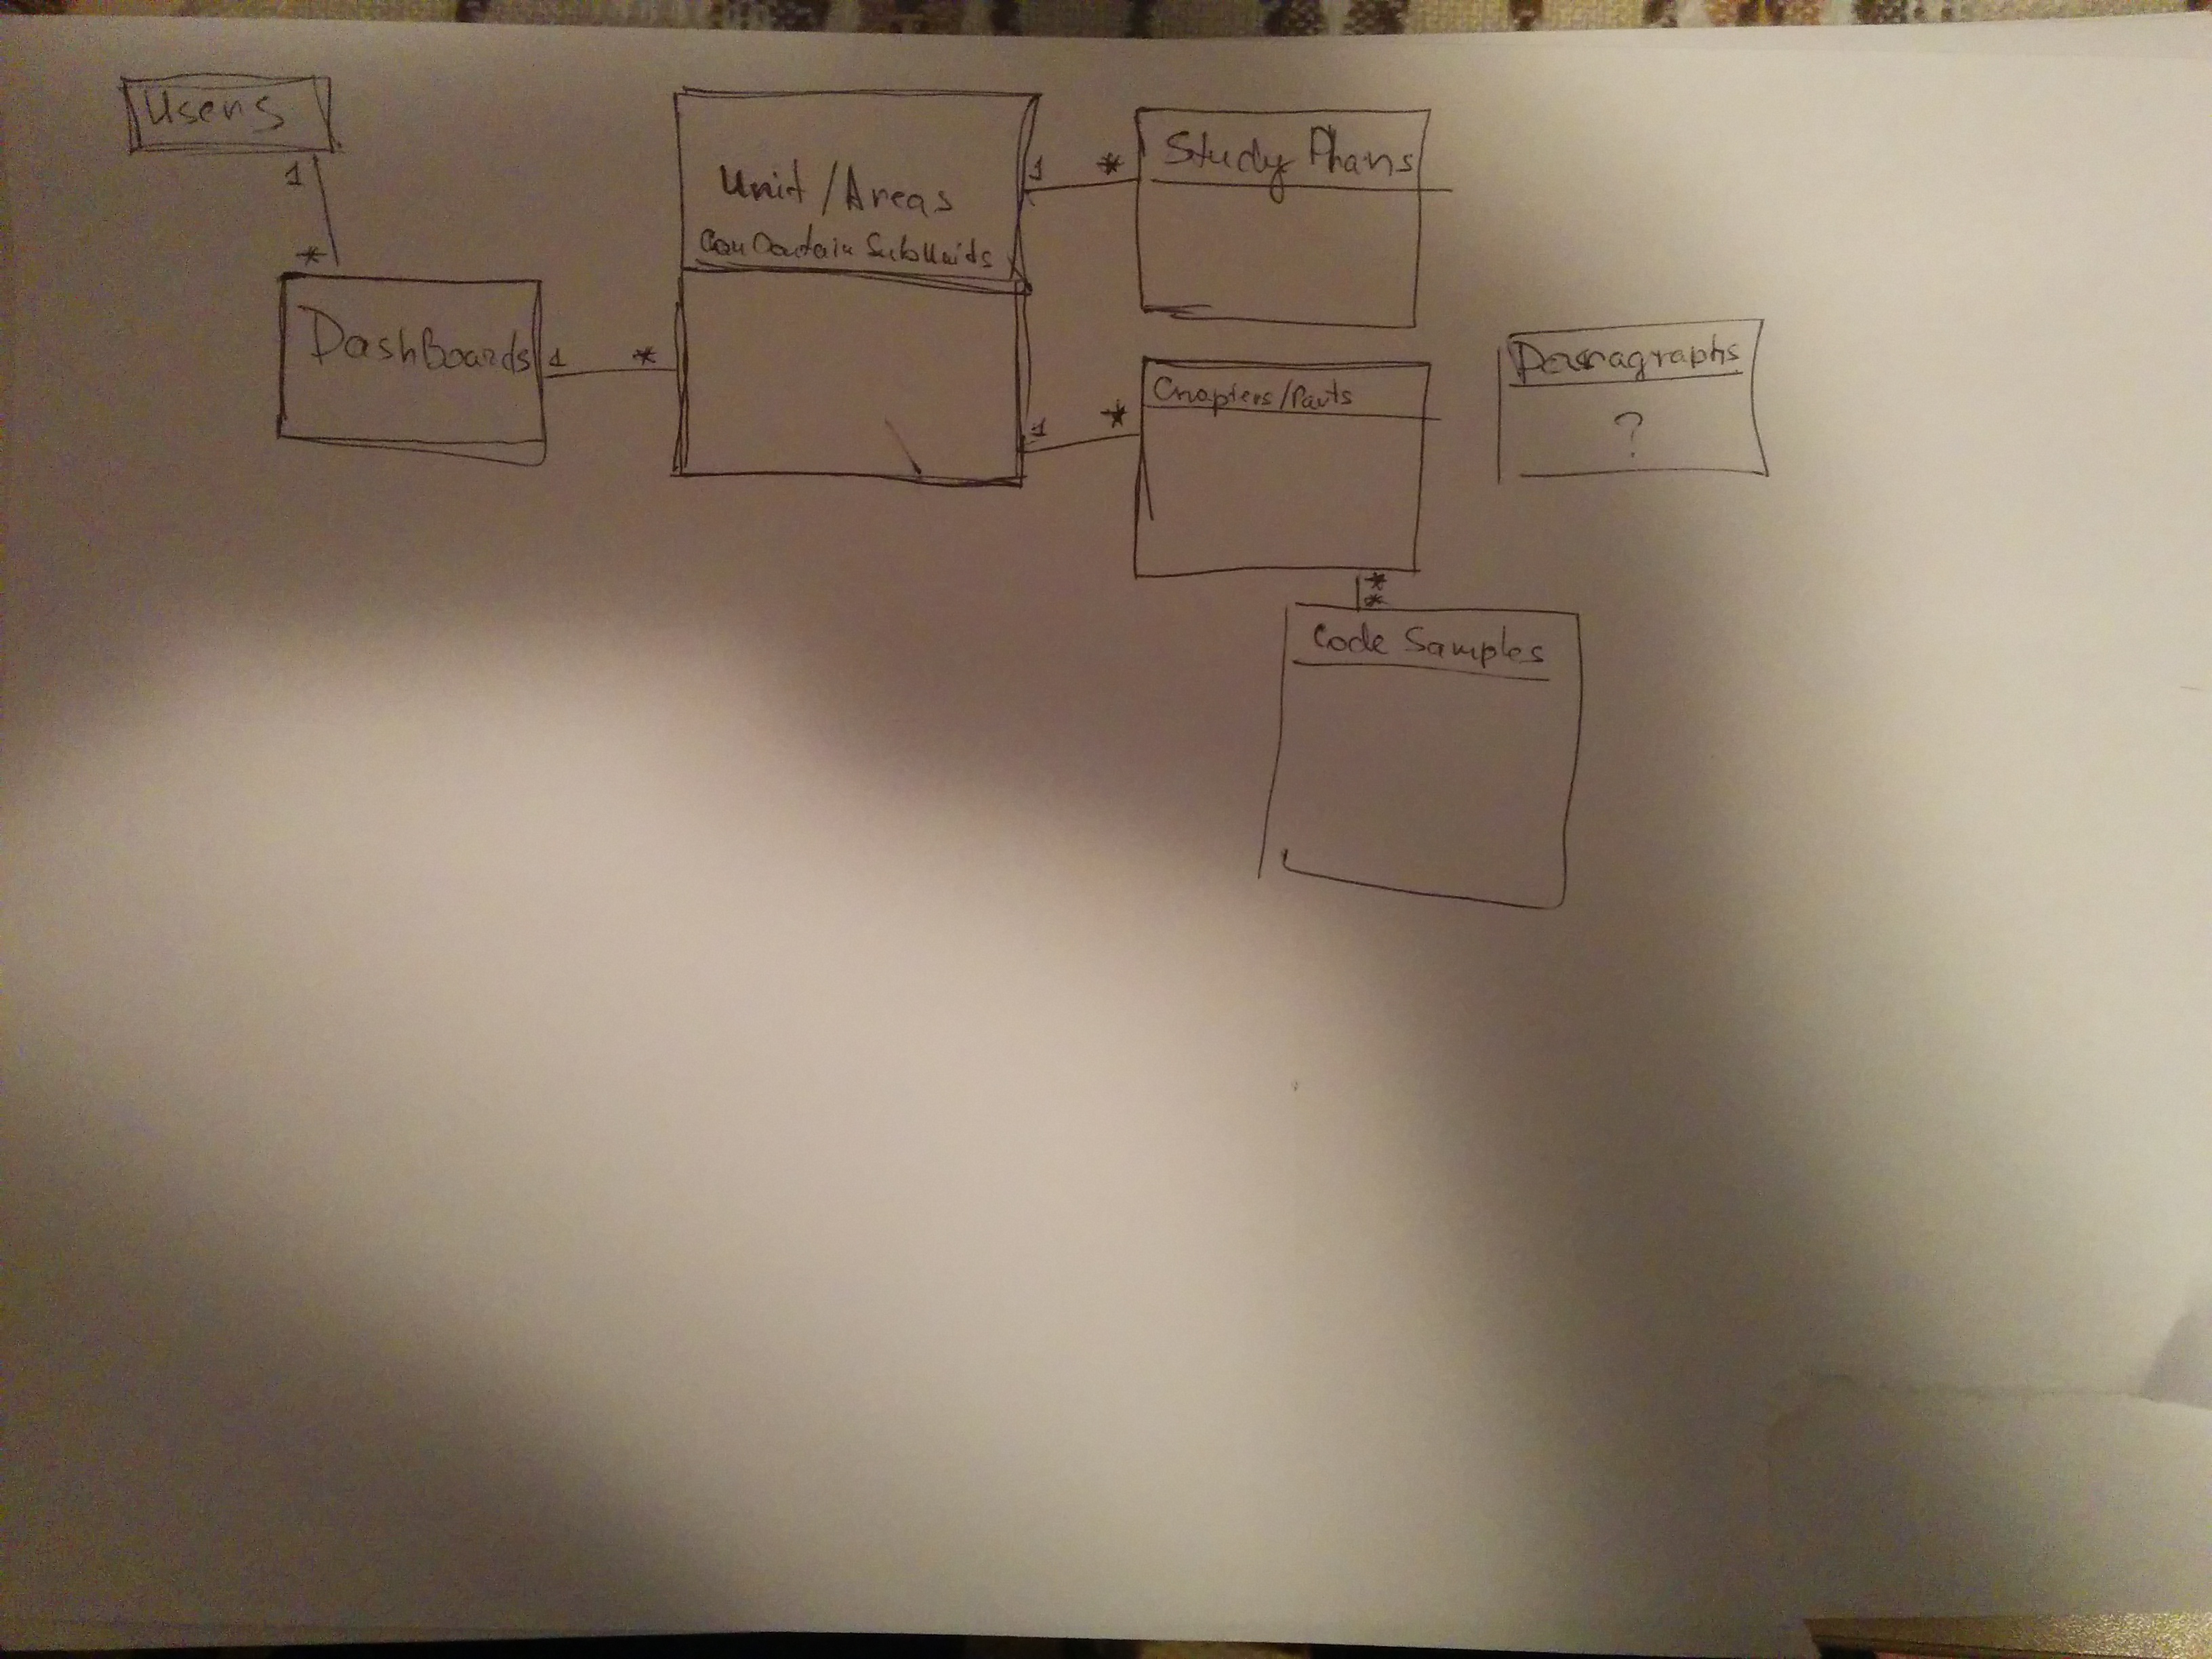 Users
1
*
DashBoards
1 *
Unit/Areas
Can Contain SubUnits
1 *
Study Plans
1 *
Chapters/Parts
*
*
Code Samples
Paragraphs
?